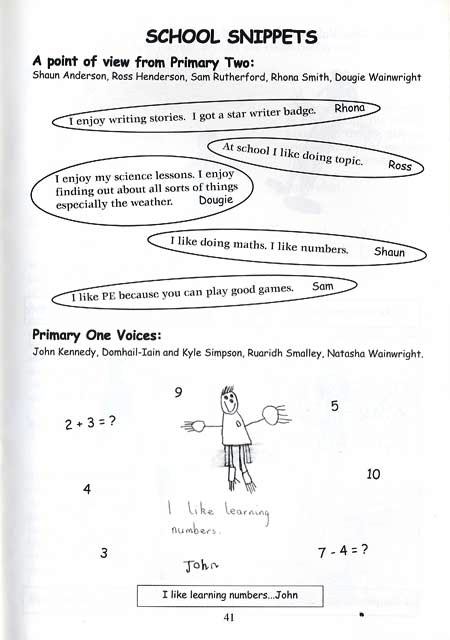 SCHOOL SNIPPETS
A point of view from Primary Two:
Shaun Anderson, Ross Henderson, Sam Rutherford, Rhona Smith, Dougie Wainwright
I enjoy writing stories. I got a star writer badge. Rhona
At school I like doing topic. Ross
I enjoy my science lessons. I enjoy
finding out about all sorts of things
especially the weather. Dougie
I like doing maths. I like numbers. Shaun
I like PE because you can play good games. Sam
Primary One Voices:
John Kennedy, Domhail-Iain and Kyle Simpson, Ruaridh Smalley, Natasha Wainwright.
9
5
2 + 3 = ?
10
4
I like learning
numbers.
3
7 - 4 = ?
John
I like learning numbers...John
41